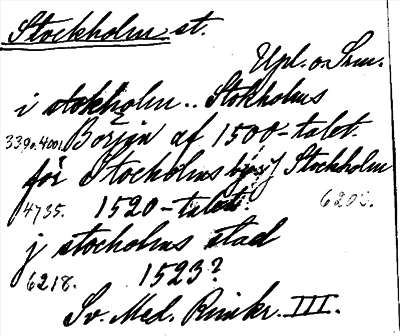 Stockholm st.
Upl. o. Srm.
i stokholm .. Stokholms
339 o. 4001. Början af 1500-talet.
för Stocholms by(s)
Stockholm 620
4735. 1520-talet.
j stocholms stad
6218. 1523?
Sv. Med. Rimkr. III.